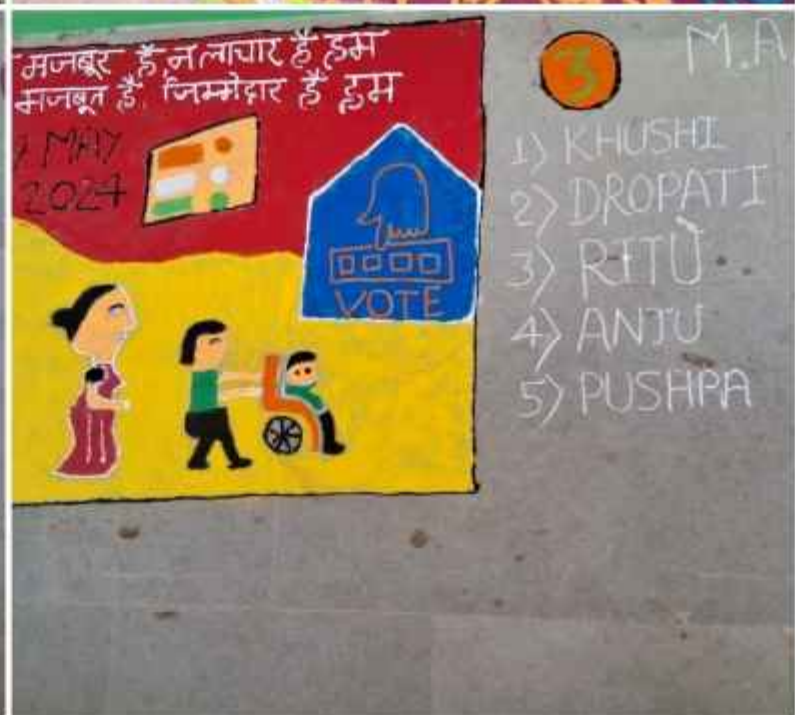 मजबूर है न लाचार है हम
मजबूत है, जिम्मेदार है हम
MAY
2024
VOTE
3
M.A
1) KHUSHI
2) DROPATI
3) RITU
4) ANJU
5) PUSHPA